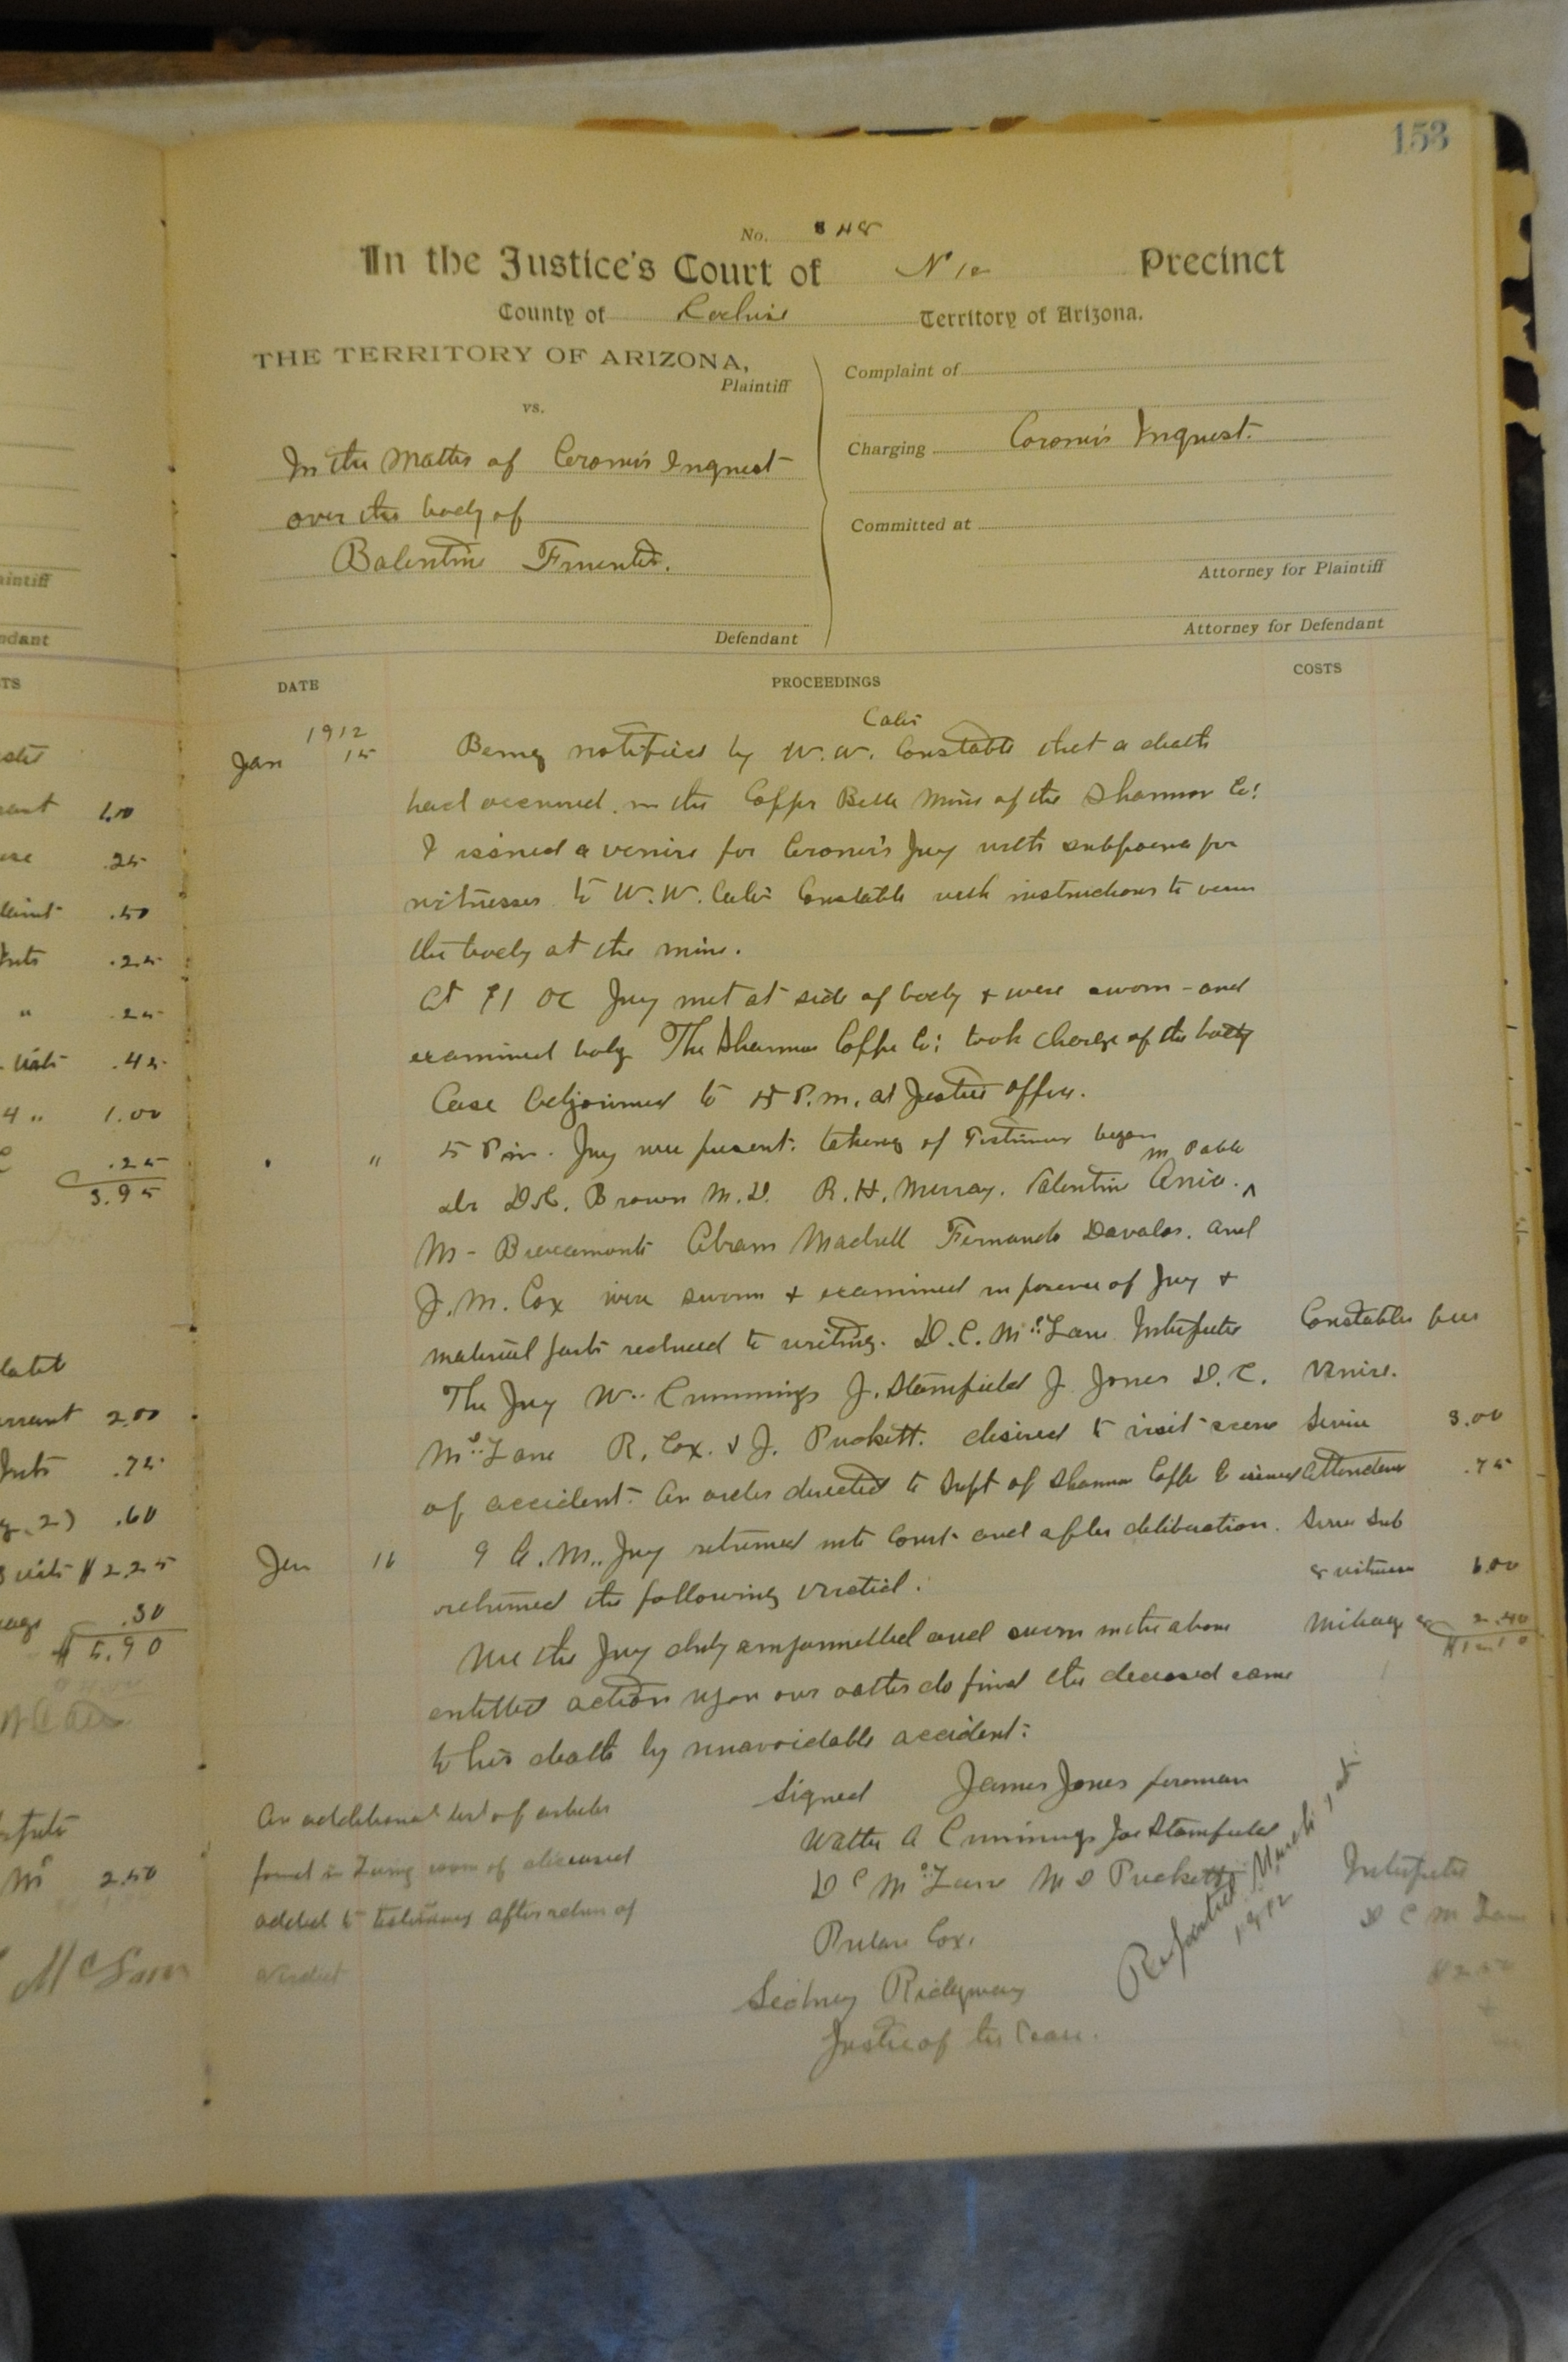 153
No. 348
In the Justice's Court of No 10 Precinct
County of Cochise Territory of Arizona.
THE TERRITORY OF ARIZONA,
Plaintiff
vs.
In the Matter of Coroner's Inquest
over the body of
Balentine
Defendant
Complaint of
Charging Coroner's Inquest.
Committed at
Attorney for Plaintiff
Attorney for Defendant
DATE
PROCEEDINGS
COSTS
1912
Jan 15
Being notified by W. W. Cates Constable that a death
had occurred in the Copper Belle Mine of the Shannon Co:
I issued a venire for Coroner's Jury with subpoena for
witnesses to W. W. Cates Constable with instructions to
the body at the mine.
At 11 OC Jury met at side of body & were sworn - and
examined body The Shannon Copper Co: took charge of the body
Case adjourned to 5 P.m. at Justice office.
" 5 P.m. Jury were present. taking of Testimony began
Dr Brown M.D. R. H. Murray. Valentin
M - Abram Fernando Davalos. and
J. M. Cox were sworn & examined in presence of Jury &
material facts reduced to writing. D. C. McLane Interpreter
The Jury Wm Cummings J. Stanfield J Jones D. C.
McLane R. Cox. & J. Puckett. desired to visit scene
of accident. An order directed to Supt of Shannon Copper Co issued
Jan 16 9 A.M. Jury returned into Court and after deliberation.
returned the following verdict.
We the Jury duly empannelled and sworn in the above
entitled action upon our oaths do find the deceased came
to his death by unavoidable accident.
Constables fees
Venire.
Service 3.00
Attendance .75
Serve Sub
8 witnesses 6.00
Mileage 2.40
Signed James Jones foreman
Walter A Cummings Joe Stanfield
D C McLane M D Puckett
Cox.
Sidney Ridgway
Justice of the Peace.
An additional list of articles
found in room of deceased
added to testimony after return of
verdict
Reported March 1st
1912
Interpreter
D C McLane
aintiff
ndant
TS
1.00
.25
.50
.25
" .25
.45
4 " 1.00
.25
3.95
2.00
.75
.60
$ 2.25
.30
$ 5.90
2.50
McLane